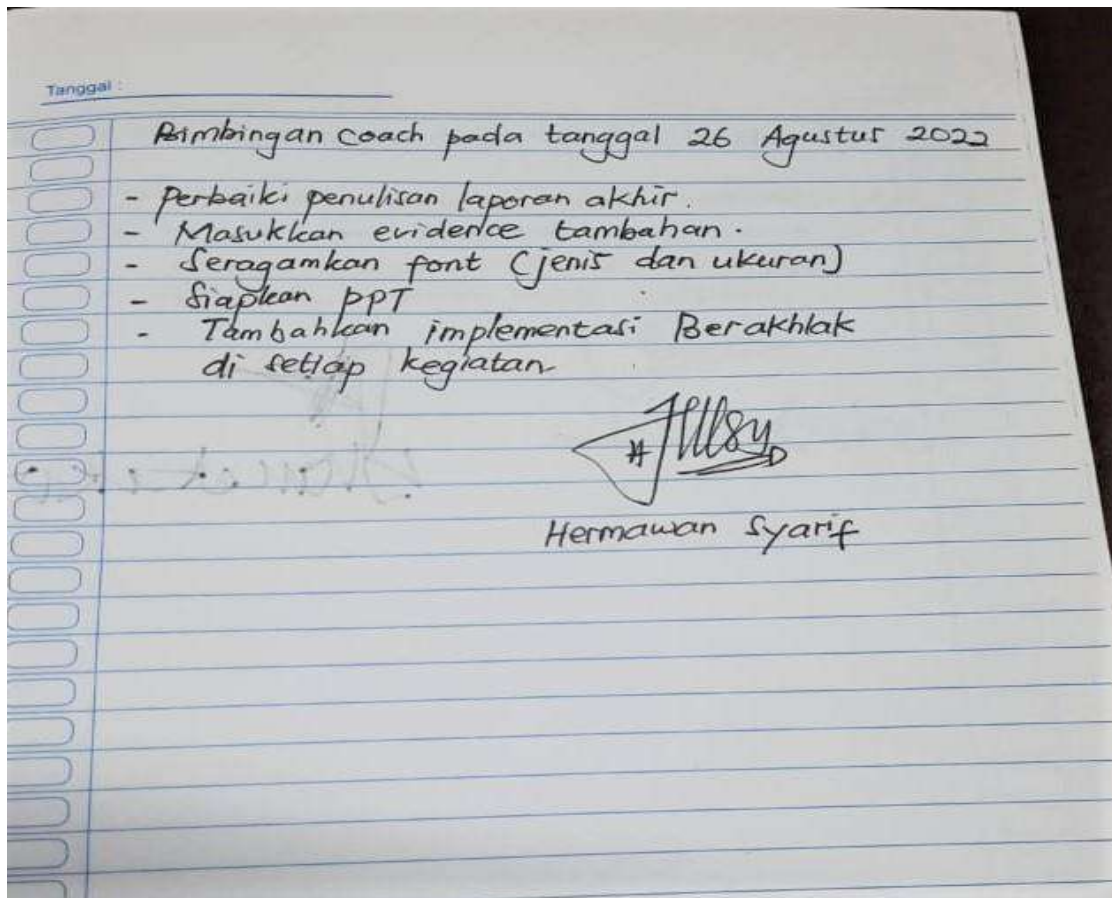 Tanggal :
Bimbingan Coach pada tanggal 26 Agustus 2022
- Perbaiki penulisan laporan akhir.
- Masukkan evidence tambahan.
- Seragamkan font (jenis dan ukuran)
- Siapkan PPT
- Tambahkan implementasi Berakhlak
di setiap kegiatan
Hermawan Syarif